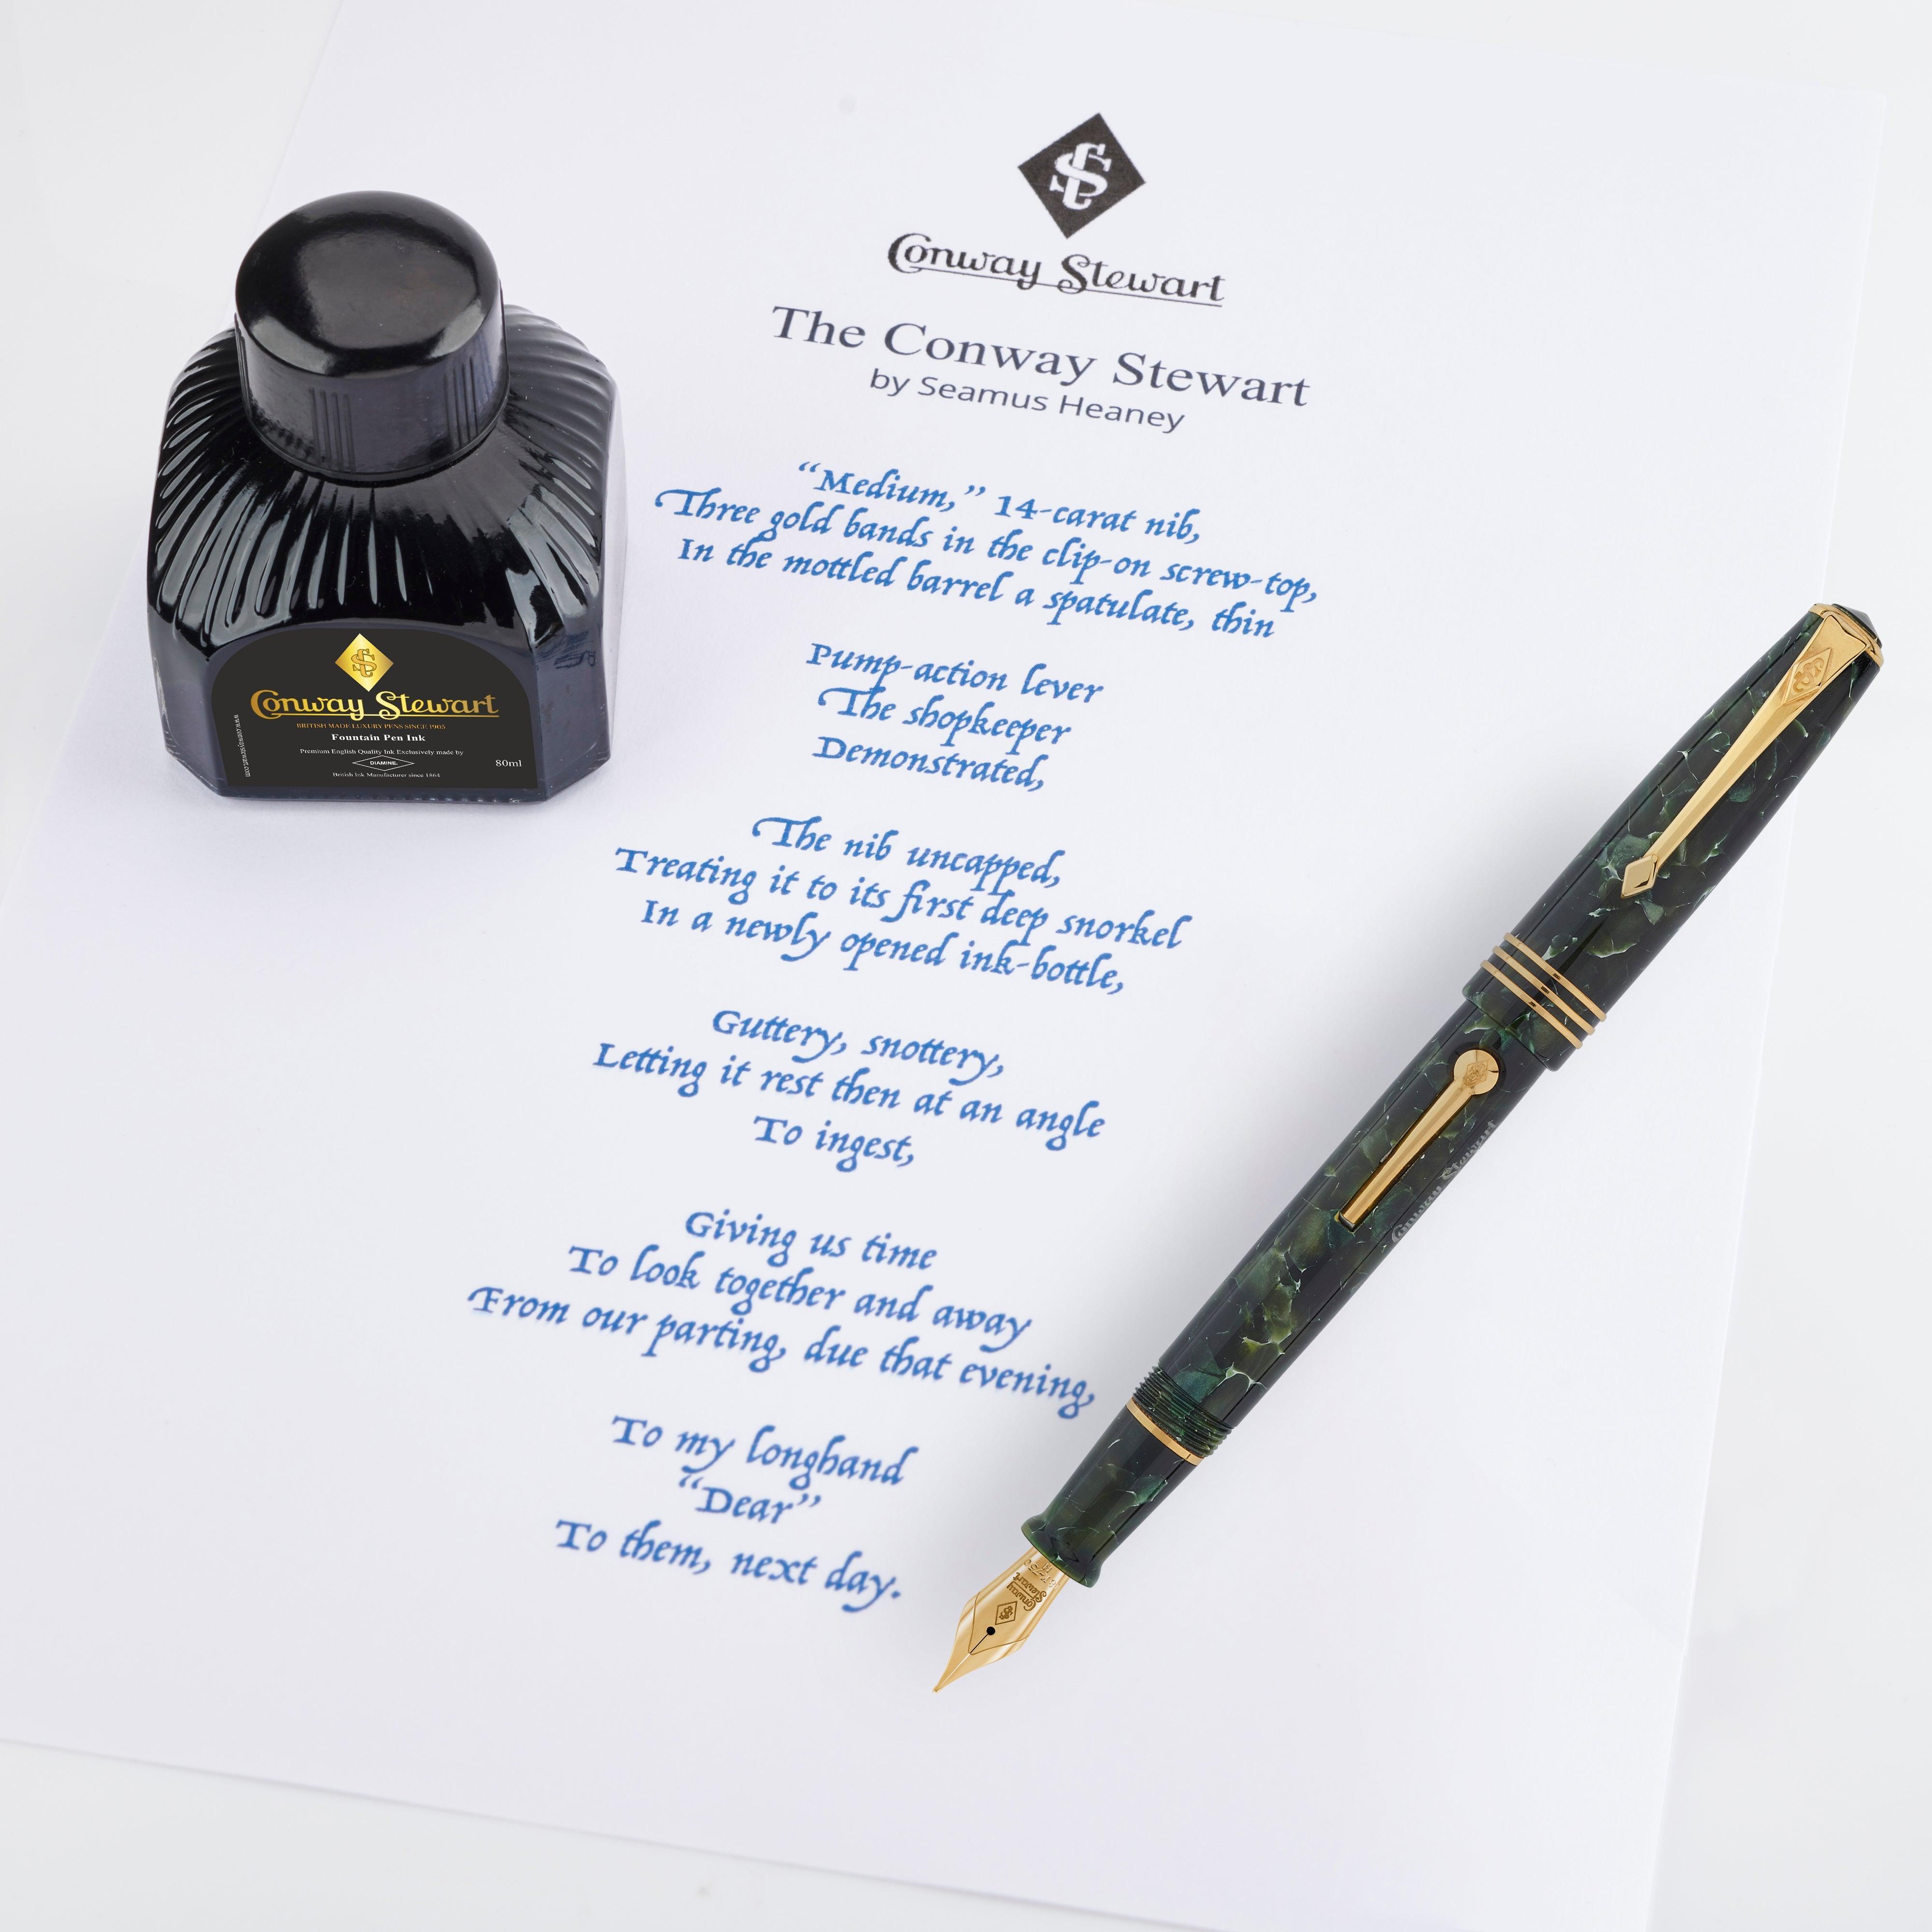 Conway Stewart
The Conway Stewart
by Seamus Heaney
“Medium,” 14-carat nib,
Three gold bands in the clip-on screw-top,
In the mottled barrel a spatulate, thin
Pump-action lever
The shopkeeper
Demonstrated,
The nib uncapped,
Treating it to its first deep snorkel
In a newly opened ink-bottle,
Guttery, snottery,
Letting it rest then at an angle
To ingest,
Giving us time
To look together and away
From our parting, due that evening,
To my longhand
“Dear”
To them, next day.
Conway Stewart
BRITISH MADE LUXURY PENS SINCE 1905
Fountain Pen Ink
Premium English Quality Ink Exclusively made by
DIAMINE
80ml
British Ink Manufacturer since 1864
www.conwaystewart.com
Conway Stewart
Conway
Stewart